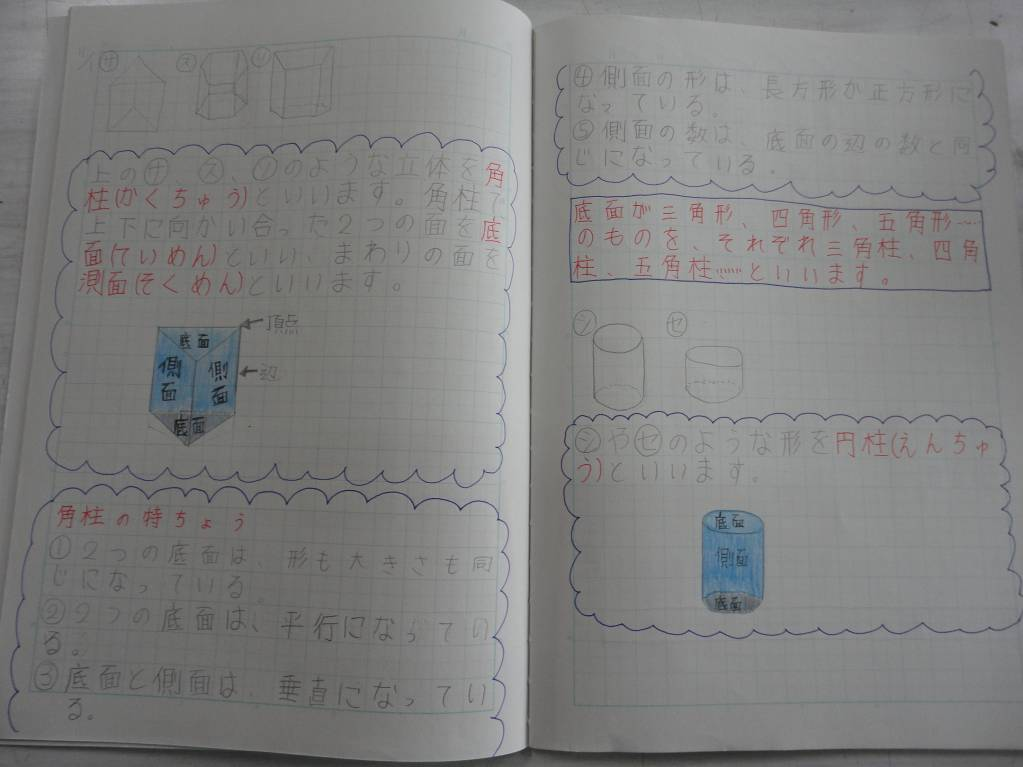 11/1 サ ス ソ
上のサ、ス、ソのような立体を角
柱(かくちゅう)といいます。角柱で
上下に向かい合った2つの面を底
面(ていめん)といい、まわりの面を
測面(そくめん)といいます。
頂点
底面
側面
側面
辺
底面
角柱の特ちょう
①2つの底面は、形も大きさも同
じになっている。
②2つの底面は、平行になってい
る。
③底面と側面は、垂直になってい
る。
④側面の形は、長方形か正方形に
なっている。
⑤側面の数は、底面の辺の数と同
じになっている。
底面が三角形、四角形、五角形……
のものを、それぞれ三角柱、四角
柱、五角柱……といいます。
シ セ
シやセのような形を円柱(えんちゅ
う)といいます。
底面
側面
底面